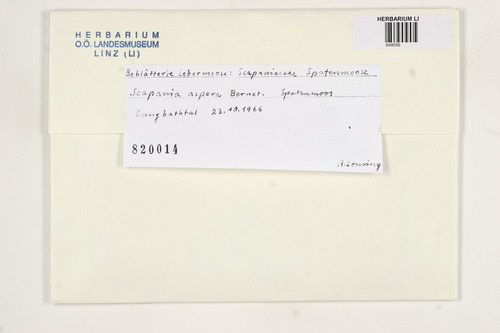 HERBARIUM
O.Ö. LANDESMUSEUM
LINZ (LI)
HERBARIUM LI
Beblätterte Lebermoose: Scapaniaceae Spatenmoose
Scapania aspera Bernet. Spatenmoos
Langbathtal 23.10.1966
820014